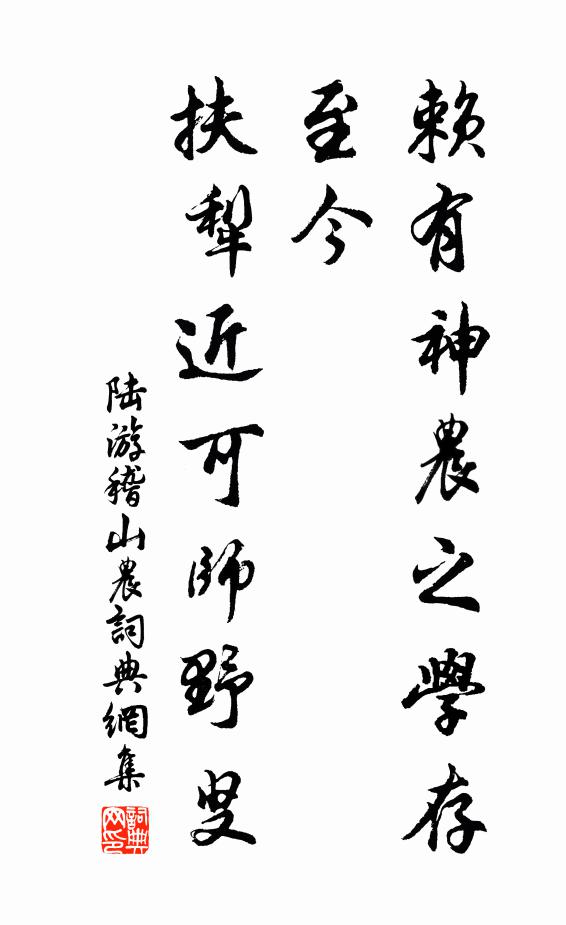 赖有神農之學存
至今
扶犁近可師野叟
陆游稽山農詞典網集
詞典网印